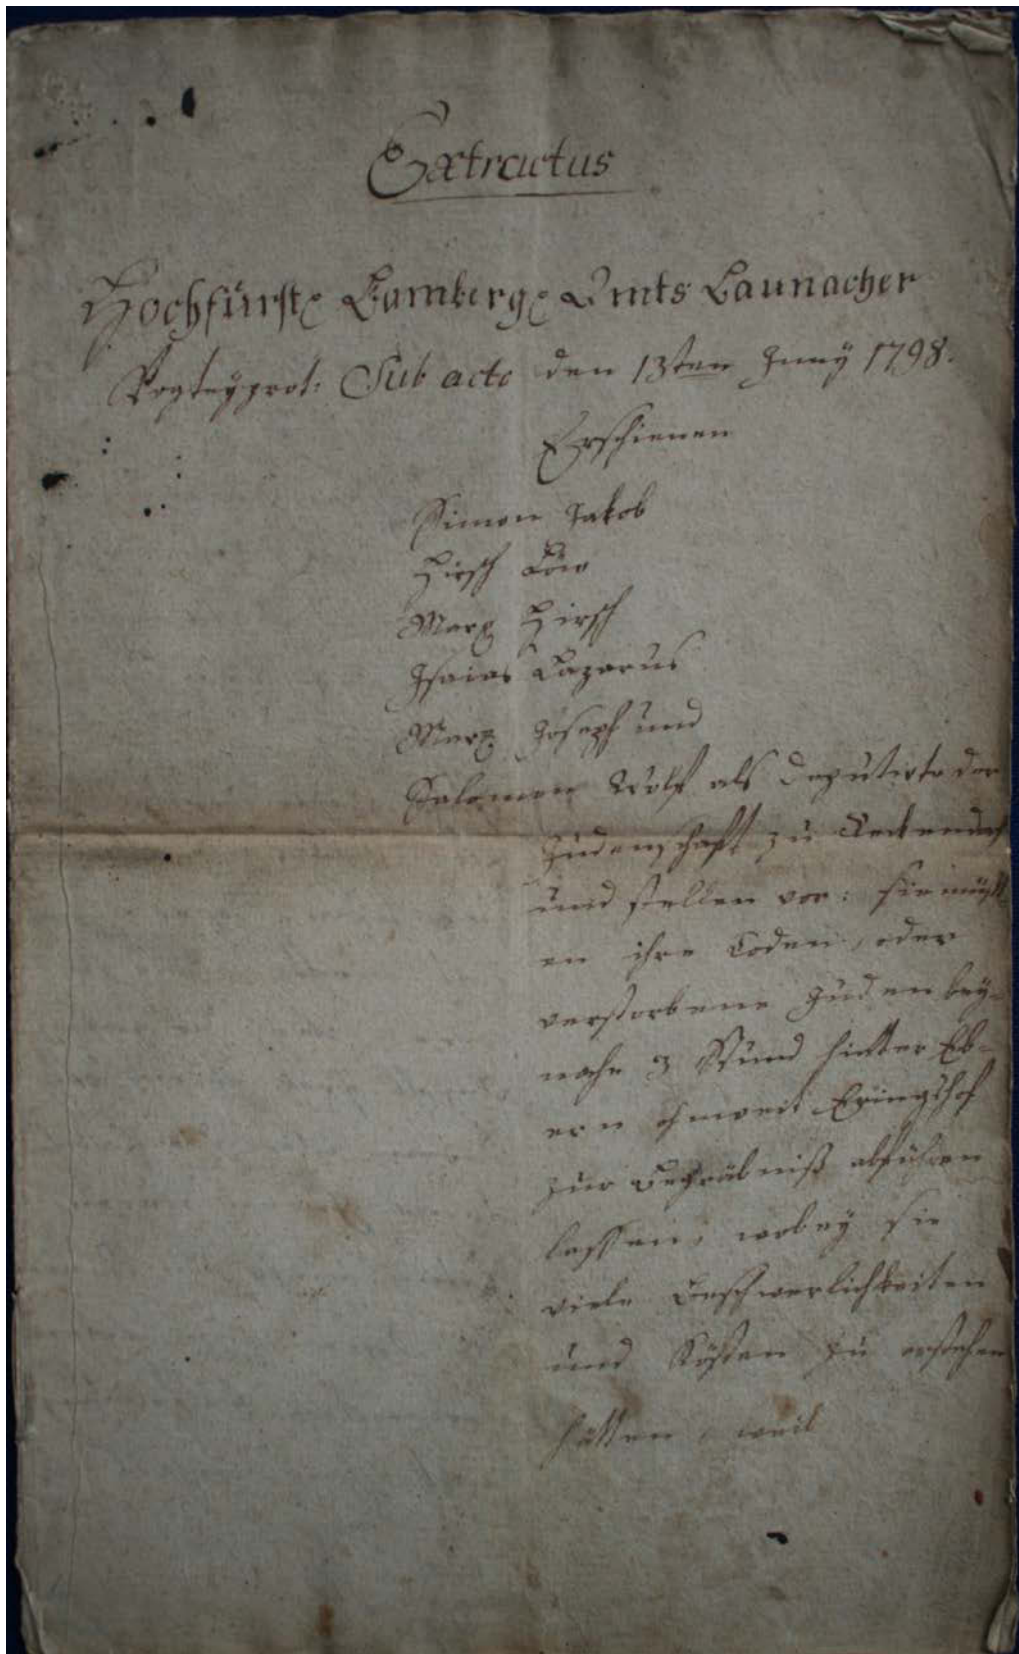 Extractus
Hochfürstl. Bamberg. Amts Baunacher
Vogteyprot: Sub acto den 13ten Juny 1798.
Erschienen
Simon Jakob
Hirsch Löw
Marx Hirsch
Isaias Lazarus
Marx Joseph und
Salomon Wolf als Deputirte der
Judenschaft zu Reckendorf
und stellen vor: sie müßt
en ihre Toden, oder
verstorbene Juden bey-
nahe 3 Stund hinter Eb-
ern ohnweit Eyringshof
zur Begräbniß abführen
lassen, wobey sie
viele Beschwerlichkeiten
und Kösten zu erstehen
hätten, weil